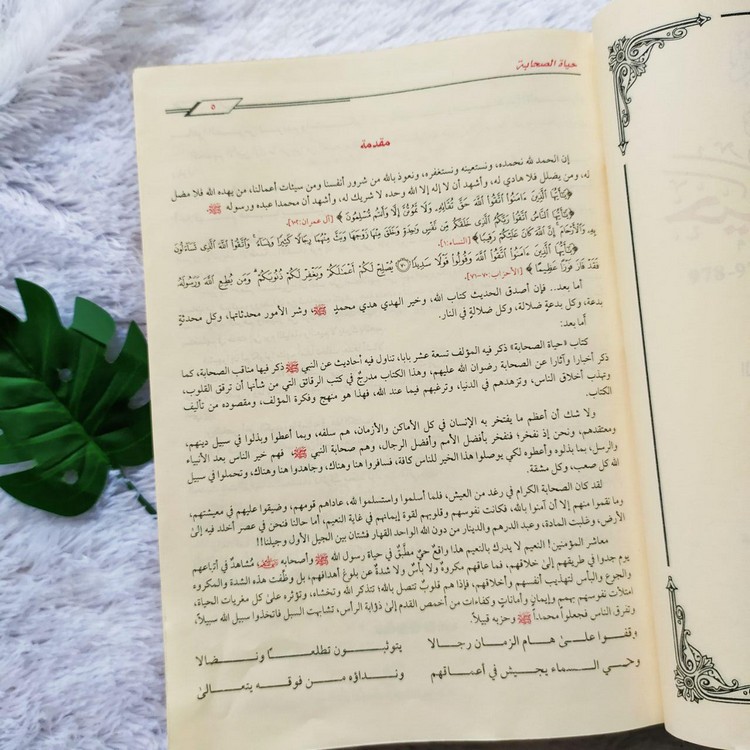 حياة الصحابة
٥
مقدمة
إن الحمد لله نحمده، ونستعينه ونستغفره، ونعوذ بالله من شرور أنفسنا ومن سيئات أعمالنا، من يهده الله فلا مضل
له، ومن يضلل فلا هادي له، وأشهد أن لا إله إلا الله وحده لا شريك له، وأشهد أن محمدا عبده ورسوله ﷺ
﴿يَٰٓأَيُّهَا ٱلَّذِينَ ءَامَنُوا۟ ٱتَّقُوا۟ ٱللَّهَ حَقَّ تُقَاتِهِۦ وَلَا تَمُوتُنَّ إِلَّا وَأَنتُم مُّسْلِمُونَ﴾ [آل عمران:١٠٢].
﴿يَٰٓأَيُّهَا ٱلنَّاسُ ٱتَّقُوا۟ رَبَّكُمُ ٱلَّذِى خَلَقَكُم مِّن نَّفْسٍ وَٰحِدَةٍ وَخَلَقَ مِنْهَا زَوْجَهَا وَبَثَّ مِنْهُمَا رِجَالًا كَثِيرًا وَنِسَآءً ۚ وَٱتَّقُوا۟ ٱللَّهَ ٱلَّذِى تَسَآءَلُونَ
بِهِۦ وَٱلْأَرْحَامَ ۚ إِنَّ ٱللَّهَ كَانَ عَلَيْكُمْ رَقِيبًا﴾ [النساء:١].
﴿يَٰٓأَيُّهَا ٱلَّذِينَ ءَامَنُوا۟ ٱتَّقُوا۟ ٱللَّهَ وَقُولُوا۟ قَوْلًا سَدِيدًا ۝٧٠ يُصْلِحْ لَكُمْ أَعْمَٰلَكُمْ وَيَغْفِرْ لَكُمْ ذُنُوبَكُمْ ۗ وَمَن يُطِعِ ٱللَّهَ وَرَسُولَهُۥ
فَقَدْ فَازَ فَوْزًا عَظِيمًا﴾ [الأحزاب:٧٠-٧١].
أما بعد.. فإن أصدق الحديث كتاب الله، وخير الهدي هدي محمدٍ ﷺ، وشر الأمور محدثاتها، وكل محدثةٍ
بدعة، وكل بدعةٍ ضلالة، وكل ضلالةٍ في النار.
أما بعد:
كتاب «حياة الصحابة» ذكر فيه المؤلف تسعة عشر بابا، تناول فيه أحاديث عن النبي ﷺ ذكر فيها مناقب الصحابة، كما
ذكر أخبارا وآثارا عن الصحابة رضوان الله عليهم، وهذا الكتاب مدرجٌ في كتب الرقائق التي من شأنها أن ترقق القلوب،
وتهذب أخلاق الناس، وتزهدهم في الدنيا، وترغبهم فيما عند الله، فهذا هو منهج وفكرة المؤلف، ومقصوده من تأليف
الكتاب.
ولا شك أن أعظم ما يفتخر به الإنسان في كل الأماكن والأزمان، هم سلفه، وبما أعطوا وبذلوا في سبيل دينهم،
ومعتقدهم، ونحن إذ نفخر؛ فنفخر بأفضل الأمم وأفضل الرجال، وهم صحابة النبي ﷺ فهم خير الناس بعد الأنبياء
والرسل، بما بذلوه وأعطوه لكي يوصلوا هذا الخير للناس كافة، فسافروا هنا وهناك، وجاهدوا هنا وهناك، وتحملوا في سبيل
الله كل صعب، وكل مشقة.
لقد كان الصحابة الكرام في رغد من العيش، فلما أسلموا واستسلموا لله، عاداهم قومهم، وضيقوا عليهم في معيشتهم،
وما نقموا منهم إلا أن آمنوا بالله، فكانت نفوسهم وقلوبهم لقوة إيمانهم في غاية النعيم، أما حالنا فنحن في عصر أخلد فيه إلى
الأرض، وغلبت المادة، وعبد الدرهم والدينار من دون الله الواحد القهار فشتان بين الجيل الأول وجيلنا!!
معاشر المؤمنين! النعيم لا يدرك بالنعيم هذا واقعٌ حيٌّ مطبَّقٌ في حياة رسول الله ﷺ وأصحابه رضي الله عنهم؛ مُشاهدٌ في أتباعهم
يوم جدوا في طريقهم إلى خلاقهم، فما عاقهم مكروهٌ ولا بأسٌ ولا شدةٌ عن بلوغ أهدافهم، بل وظّفت هذه الشدة والمكروه
والجوع والبأس لتهذيب أنفسهم وأخلاقهم، فإذا هم قلوبٌ تتصل بالله؛ تتذكر الله وتخشاه، وتؤثره على كل مغريات الحياة،
امتلأت نفوسهم بهممٍ وإيمانٍ وأماناتٍ وكفاءات من أخمص القدم إلى ذؤابة الرأس، تشابهت السبل فاتخذوا سبيل الله سبيلاً،
وتفرق الناس فجعلوا محمداً ﷺ وحزبه قبيلاً.
وقفوا على هام الزمان رجالا يتوثبون تطلعًا ونضالا
وحي السماء يجيش في أعماقهم ونداؤه من فوقه يتعالى